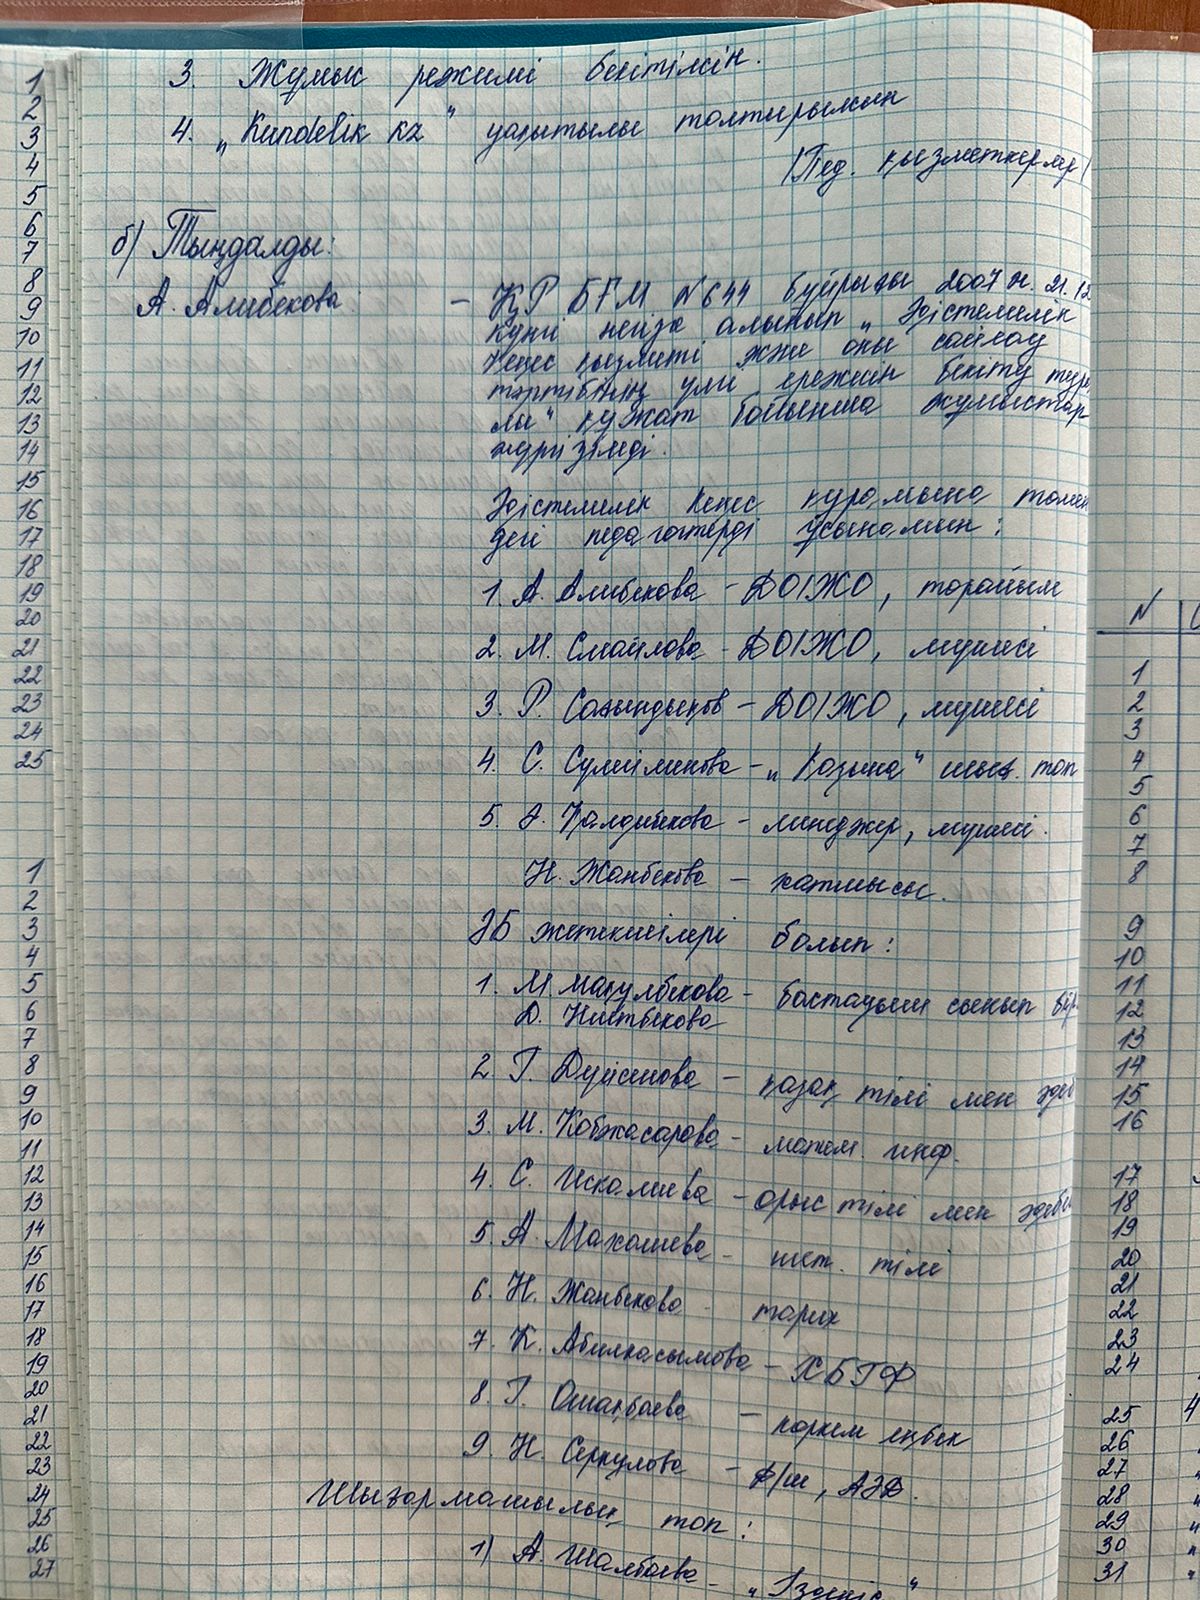 3. Жұмыс режимі бекітілсін.
4. „Kundelik kz" уақытылы толтырылсын
/Пед. қызметкерлер/
б) Тыңдалды:
А. Алибекова - ҚР БҒМ №644 бұйрығы 2007 ж. 21.12
күнгі негізге алынып „Әдістемелік
Кеңес қызметі және оны сайлау
тәртібінің үлгі ережесін бекіту тура
лы" құжат бойынша жұмыстар
жүргізілді.
Әдістемелік Кеңес құрамына төмен
дегі педагогтерді ұсынамын:
1. А. Алибекова - ДОІЖО, төрайым
2. М. Смайлова - ДОІЖО, мүшесі
3. Р. Сағындықов - ДОІЖО, мүшесі
4. С. Сулейменова - „Қазына" шығ. топ
5. Ә. Қалдыбекова - менеджер, мүшесі.
Н. Жанбекова - хатшысы.
ӘБ жетекшілері болып:
1. М. Мақұлбекова - бастауыш сынып бір.
Д. Ниетбекова
2. Г. Дуйсенова - қазақ тілі мен әдеб
3. М. Кобжасарова - матем. инф.
4. С. Искалиева - орыс тілі мен әдеби
5. А. Махашева - шет. тілі
6. Н. Жанбекова - тарих
7. К. Абилкасымова - ХБГФ
8. Г. Омақбаева - көркем еңбек
9. Н. Серкулова - ф/ш, АӘД.
Шығармашылық топ:
1) А. Шалбаева - „Ізденіс"
1
2
3
4
5
6
7
8
9
10
11
12
13
14
15
16
17
18
19
20
21
22
23
24
25
1
2
3
4
5
6
7
8
9
10
11
12
13
14
15
16
17
18
19
20
21
22
23
24
25
26
27
N
1
2
3
4
5
6
7
8
9
10
11
12
13
14
15
16
17
18
19
20
21
22
23
24
25
26
27
28
29
30
31